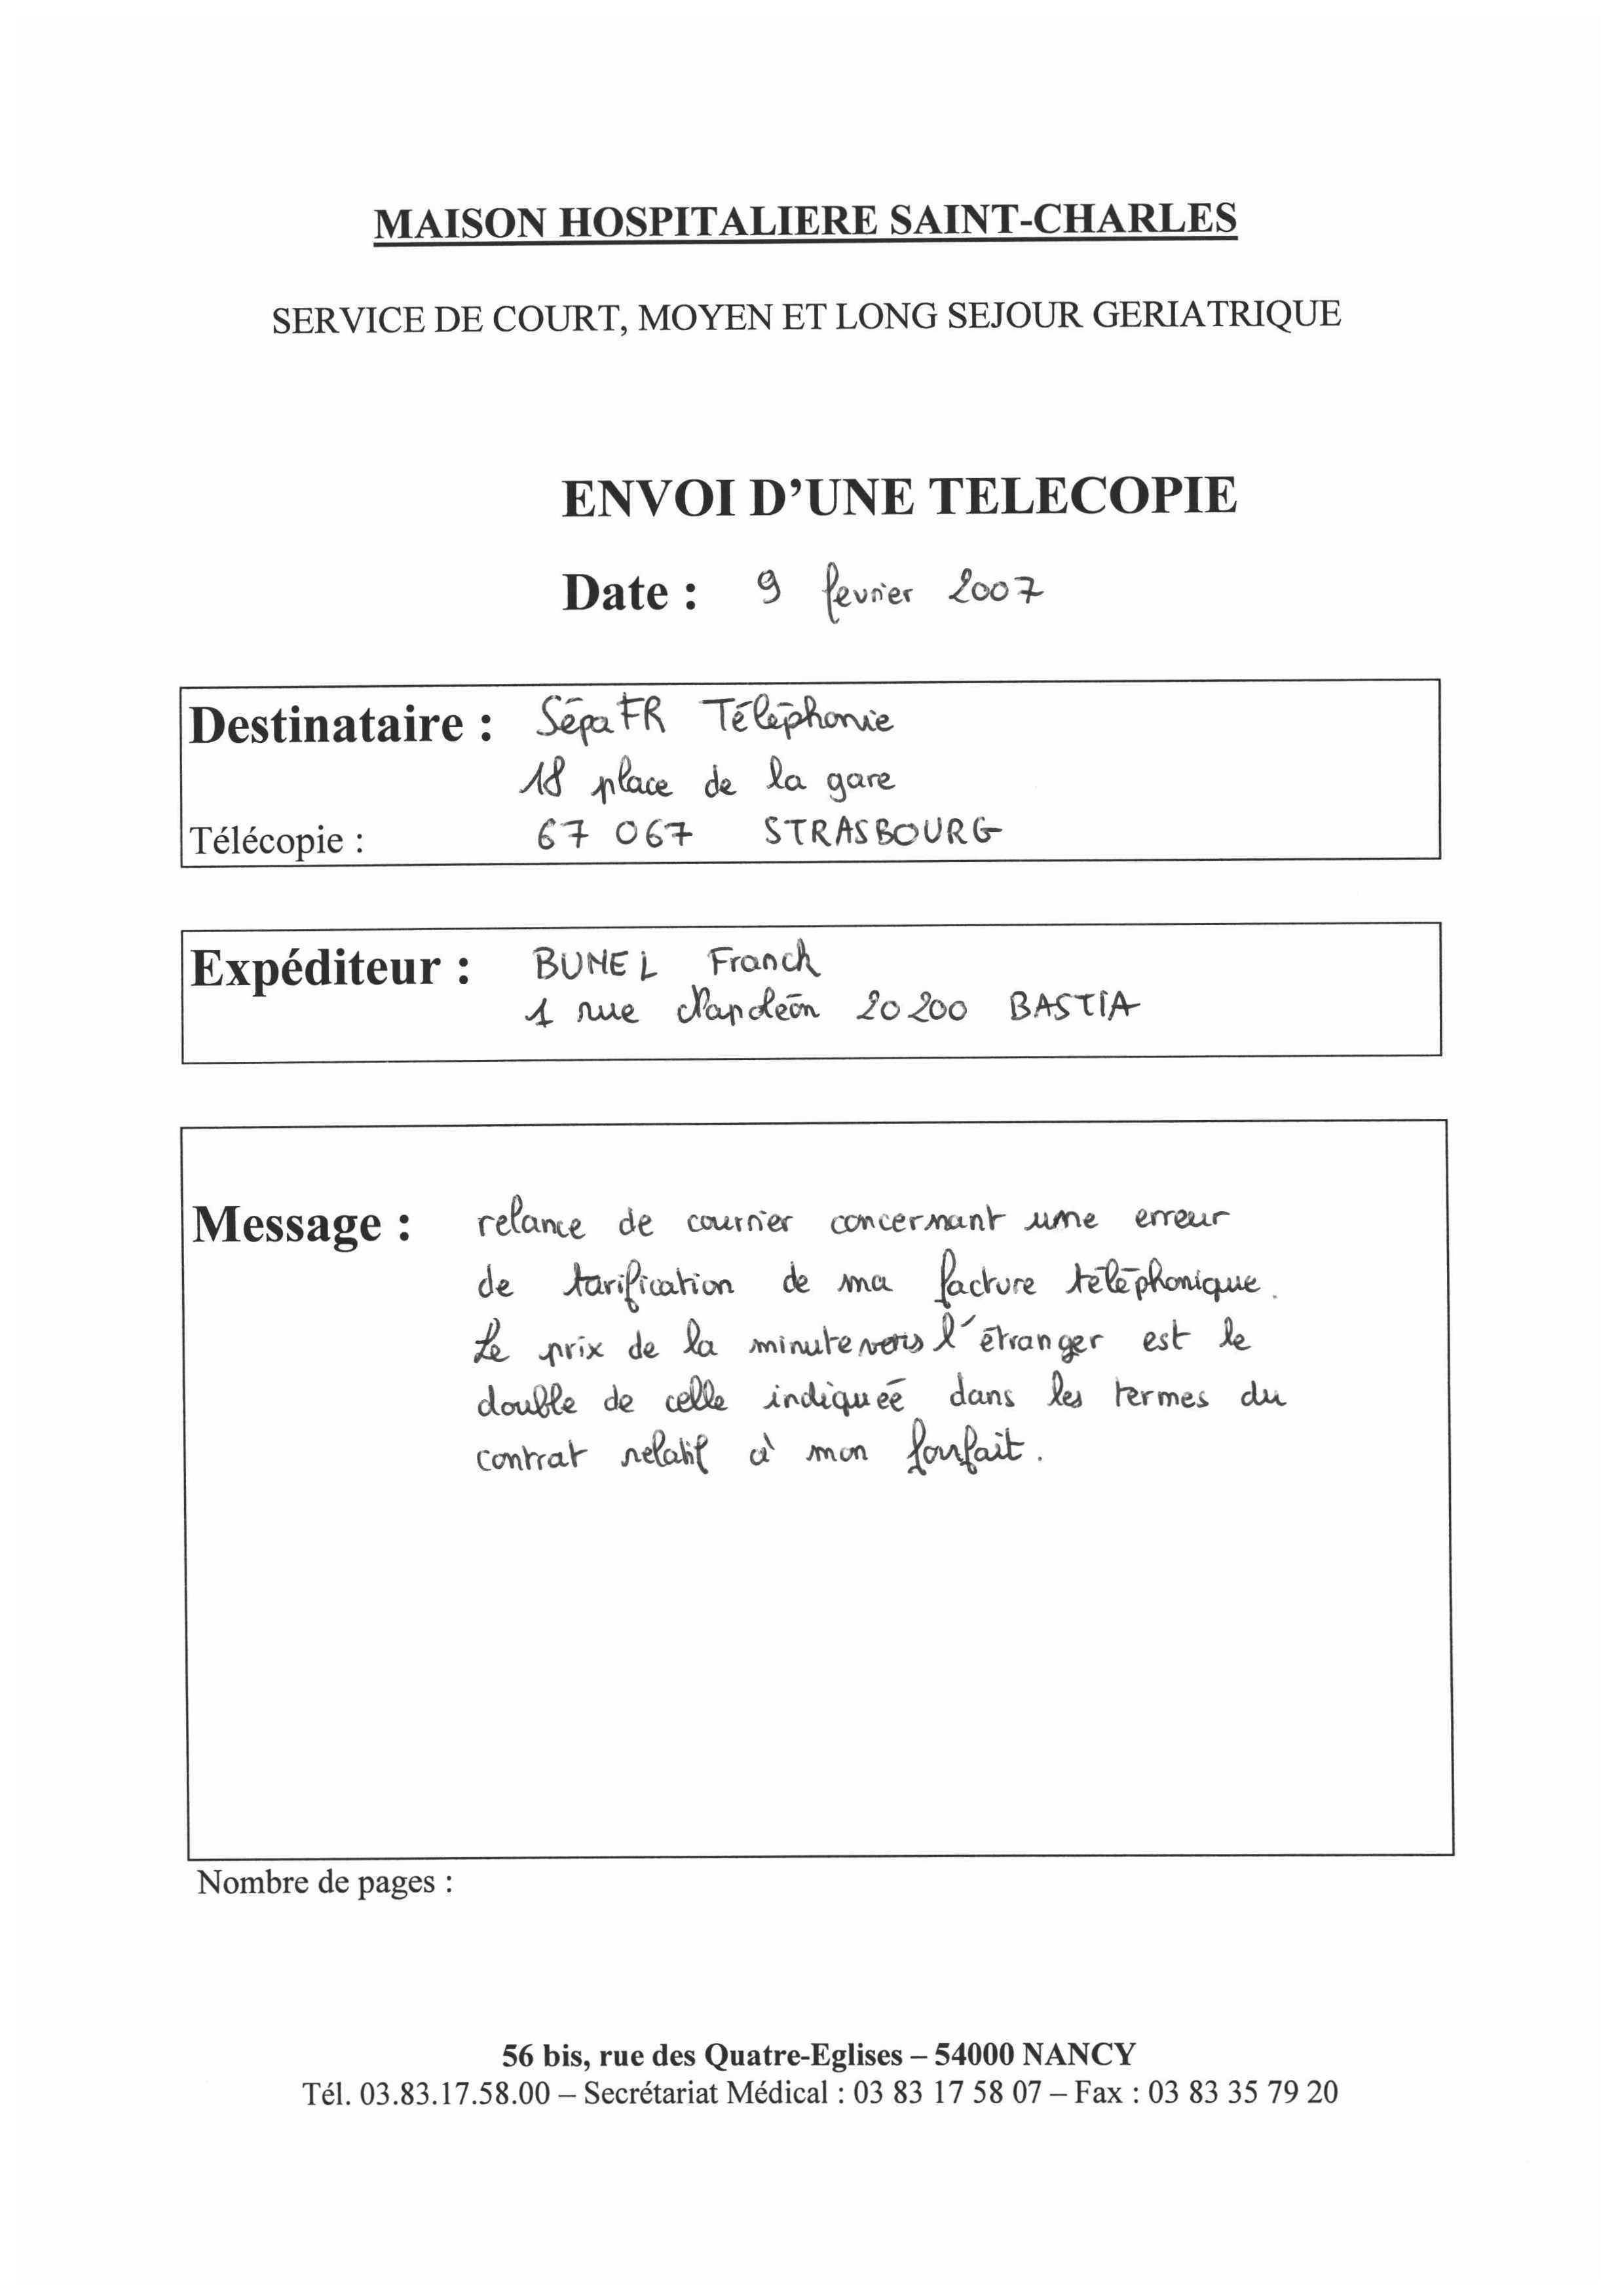 MAISON HOSPITALIERE SAINT-CHARLES
SERVICE DE COURT, MOYEN ET LONG SEJOUR GERIATRIQUE
ENVOI D'UNE TELECOPIE
Date : 9 fevrier 2007
Destinataire : SépaFR Téléphonie
18 place de la gare
Télécopie : 67 067 STRASBOURG
Expéditeur : BUNEL Franck
1 rue Napoléon 20200 BASTIA
Message : relance de courrier concernant une erreur
de tarification de ma facture téléphonique.
Le prix de la minute vers l'étranger est le
double de celle indiquée dans les termes du
contrat relatif à mon forfait.
Nombre de pages :
56 bis, rue des Quatre-Eglises – 54000 NANCY
Tél. 03.83.17.58.00 – Secrétariat Médical : 03 83 17 58 07 – Fax : 03 83 35 79 20